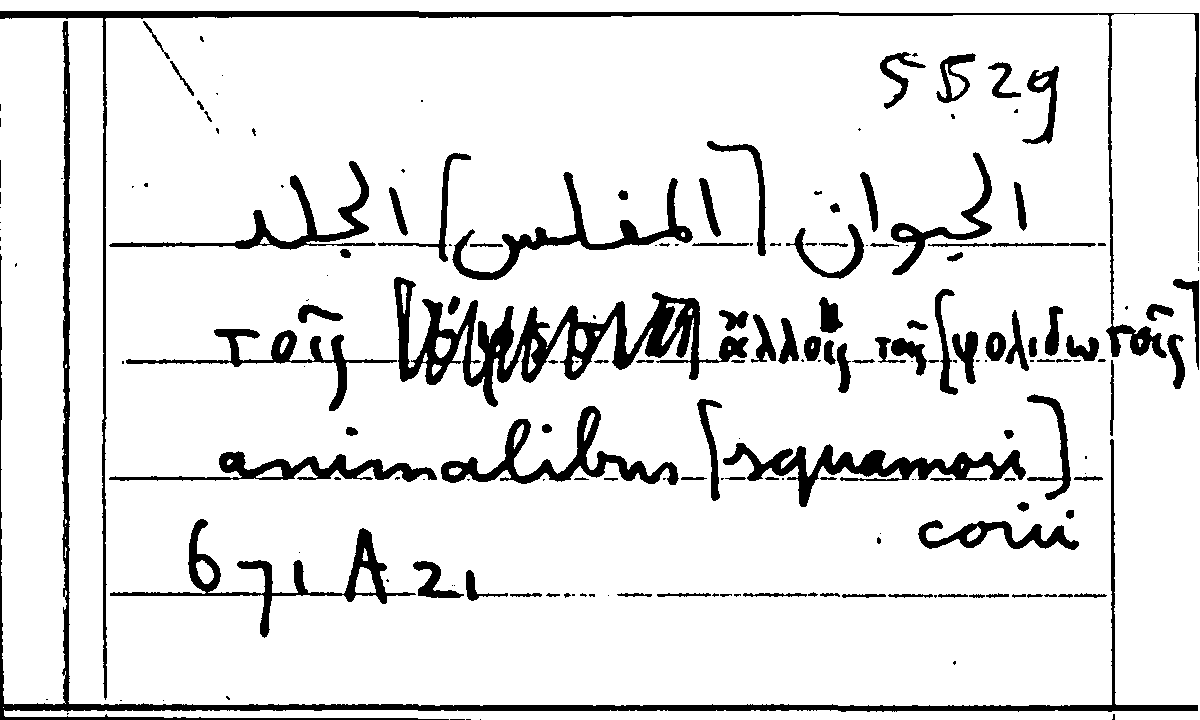 5529
الحيوان [المفلس] الجلد
τοῖς ἄλλοις τοῖς [φολιδωτοῖς]
animalibus [squamosi]
corii
671 A 21